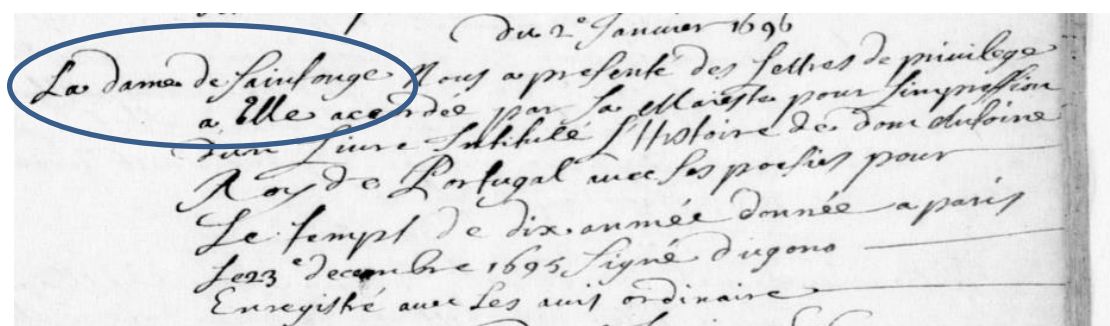 Du 2e Janvier 1696
La dame de Sainfonge Nous a presenté des Lettres de privilege
a Elle accordée par Sa Maieste pour Limpression
dun Livre Intitulé L'Histoire de dom Antoine
Roy de Portugal avec ses poesies pour
Le temps de dix année donnée a paris
Le 23e decembre 1695 signé dugono
Enregistré avec Les avis ordinaire